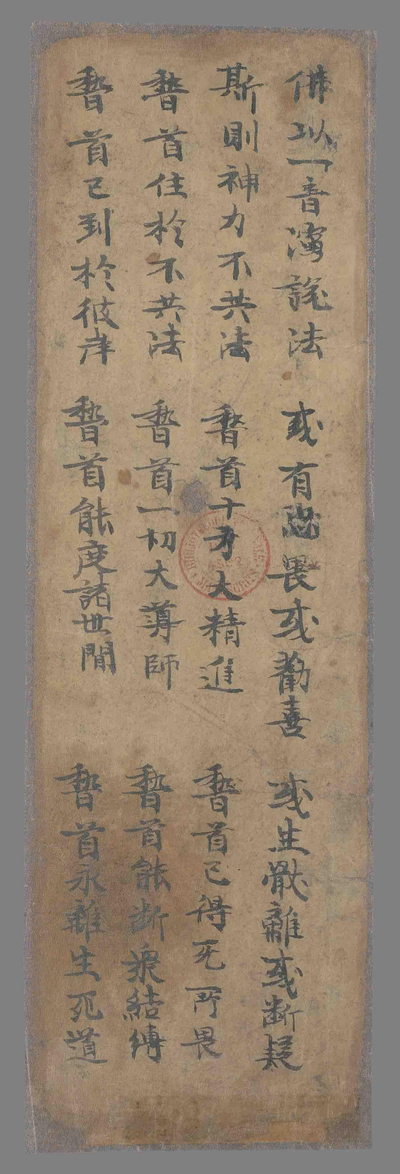 佛以一音演說法　或有恐畏或勸喜　或生厭離或斷疑
斯則神力不共法　稽首十力大精進　稽首已得无所畏
稽首住於不共法　稽首一切大導師　稽首能斷衆結縛
稽首已到於彼岸　稽首能度諸世間　稽首永離生死道